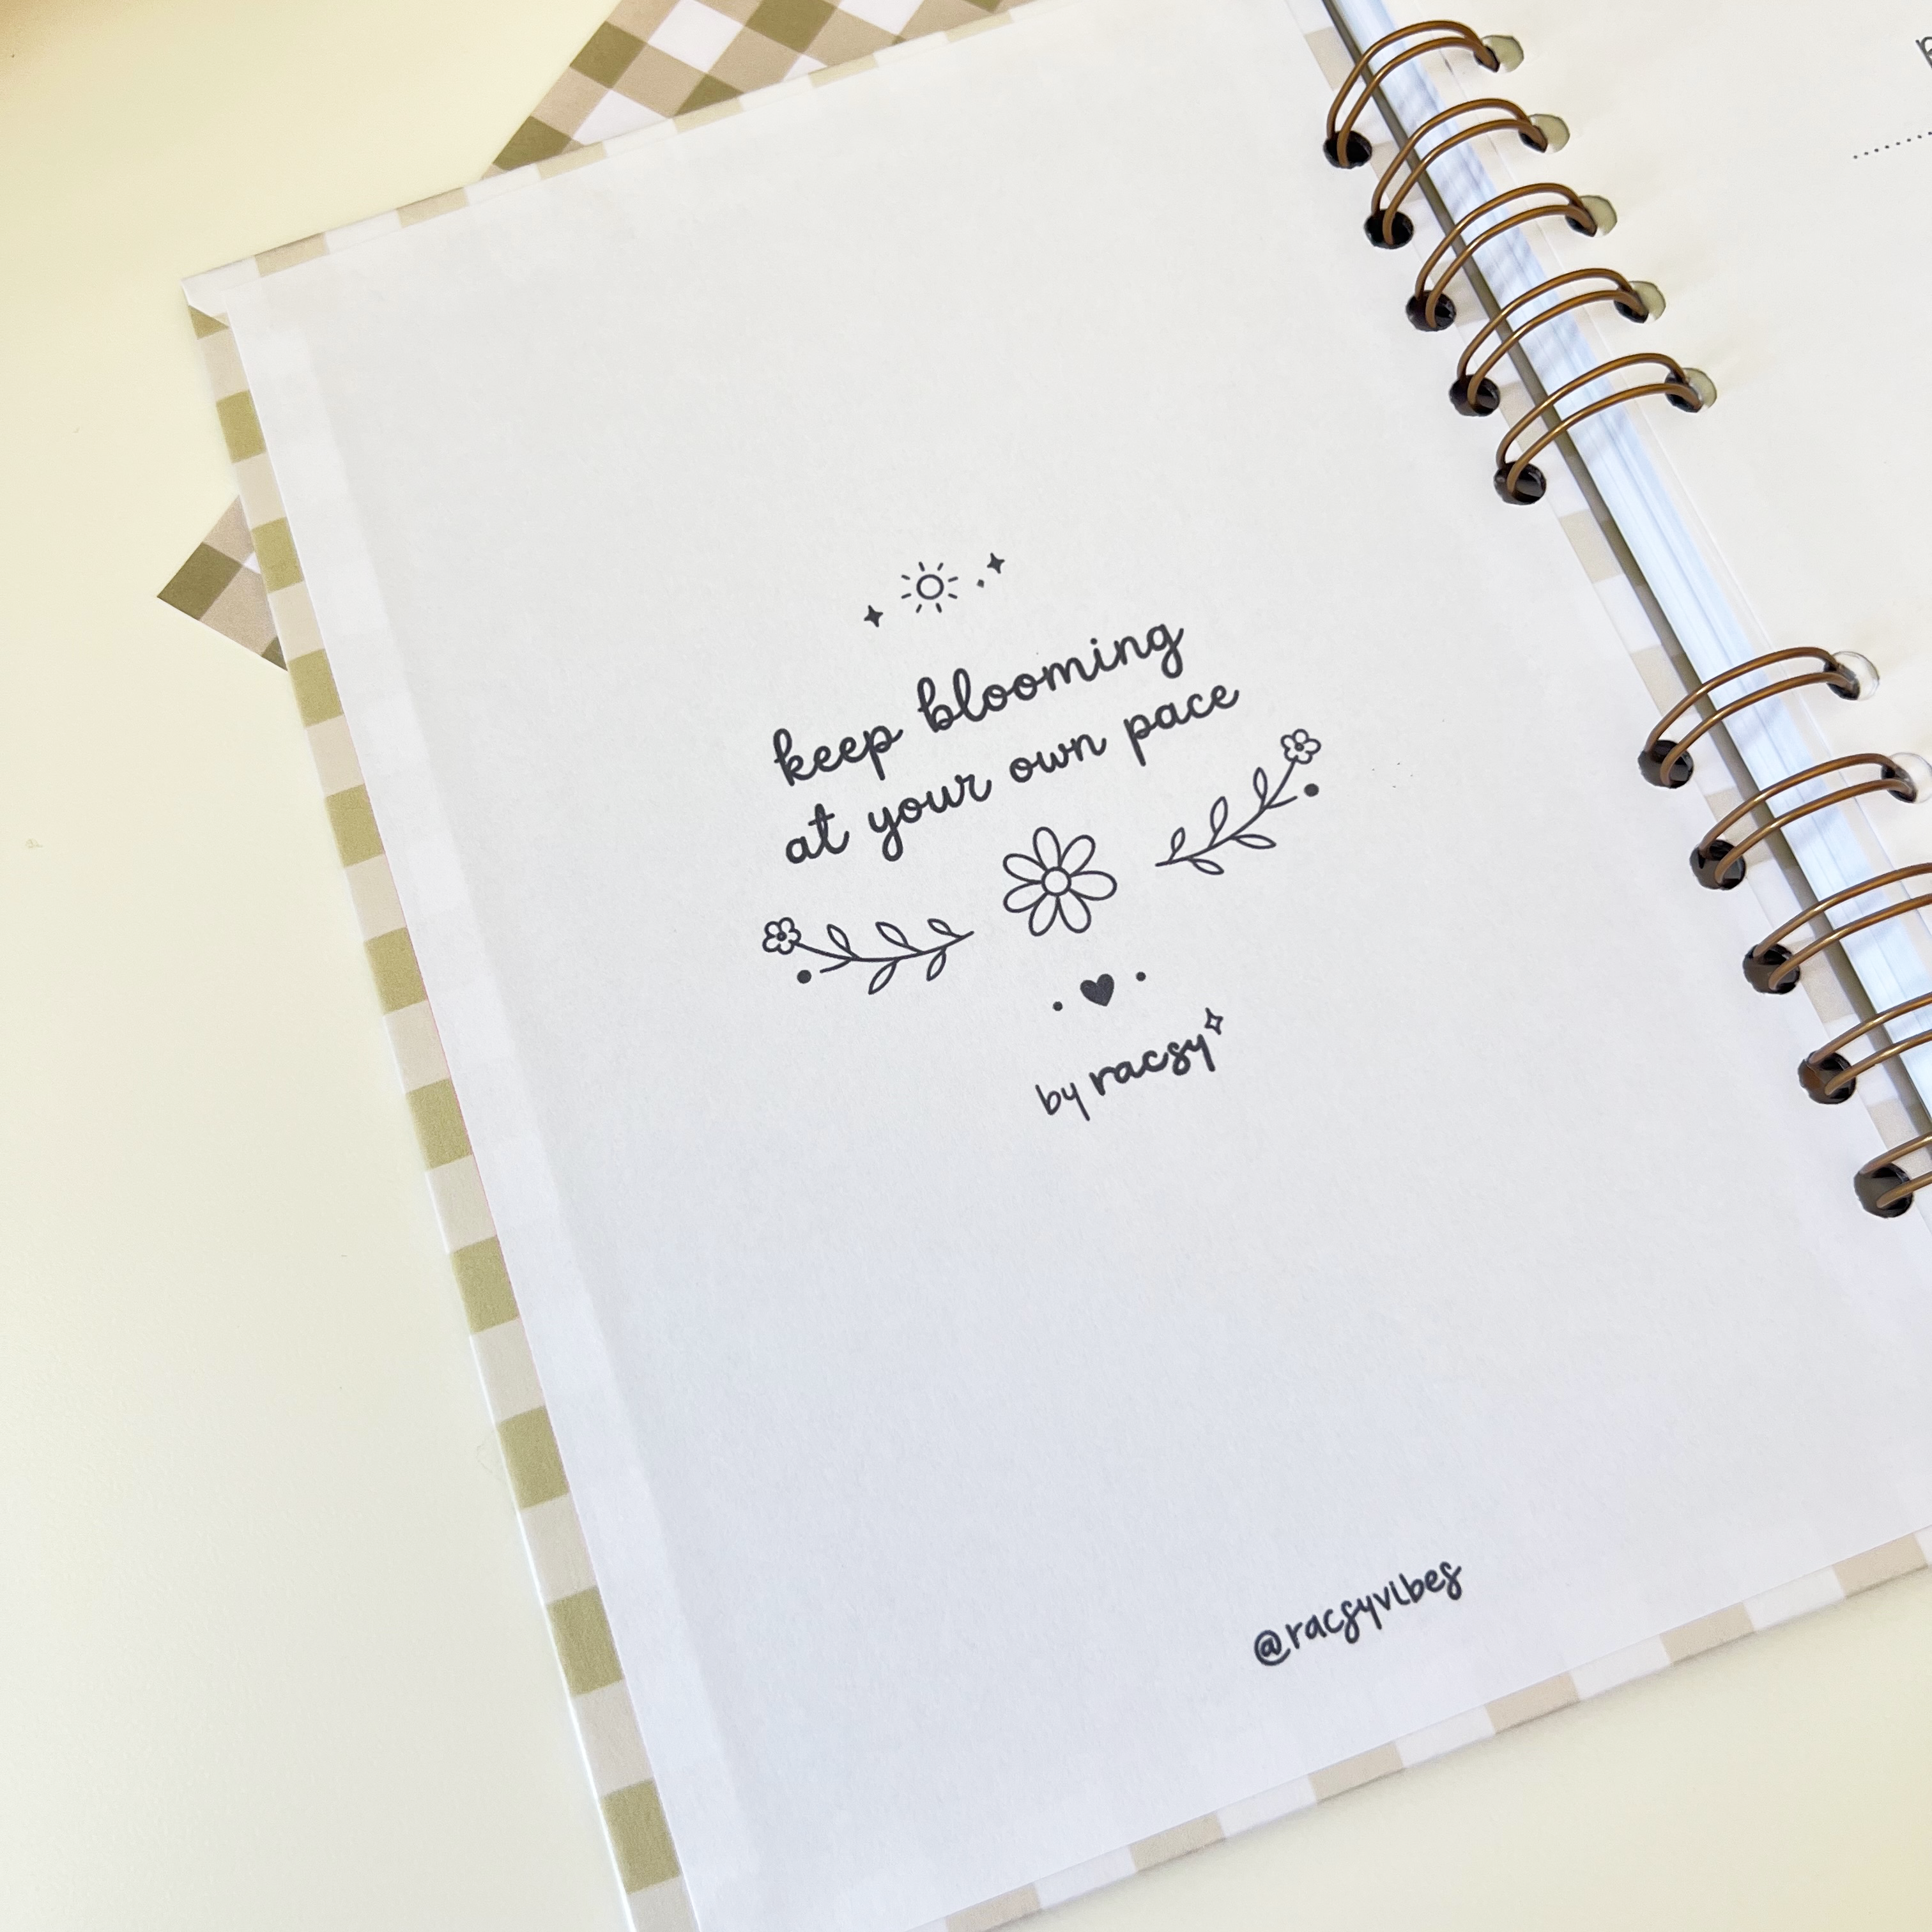 keep blooming
at your own pace
by racsy
@racsyvibes